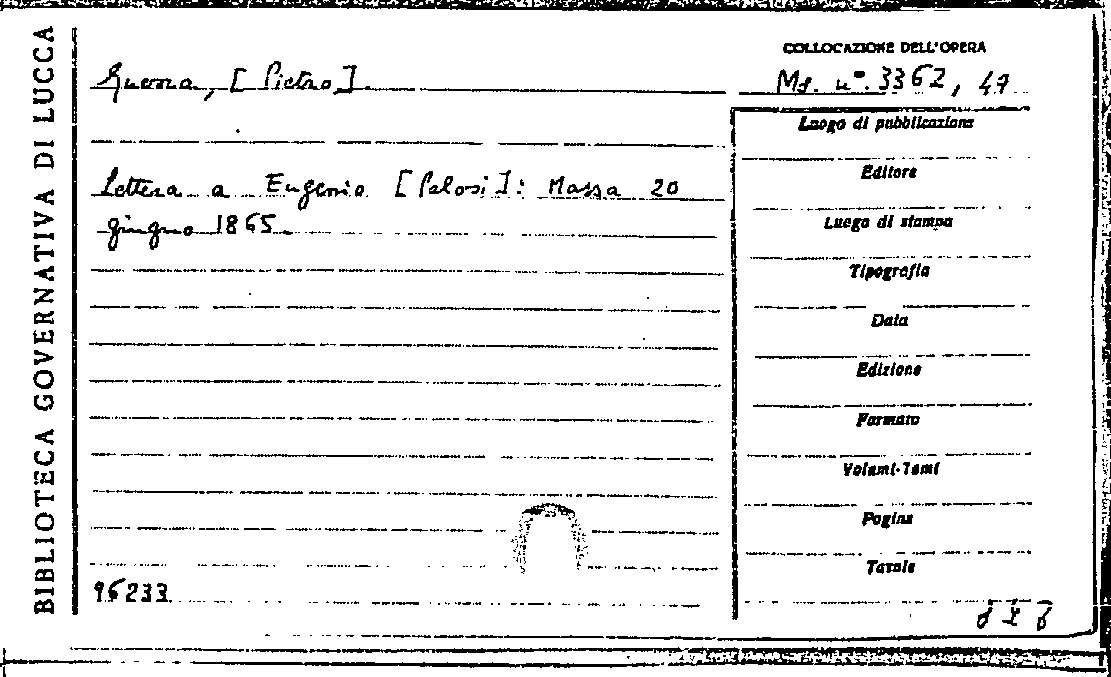 BIBLIOTECA GOVERNATIVA DI LUCCA
COLLOCAZIONE DELL'OPERA
Guerra, [Pietro].
Ms. n°. 3362, 47
Lettera a Eugenio [Pelosi]: Massa 20
giugno 1865.
Luogo di pubblicazione
Editore
Luogo di stampa
Tipografia
Data
Edizione
Formato
Volumi-Tomi
Pagine
Tavole
96233